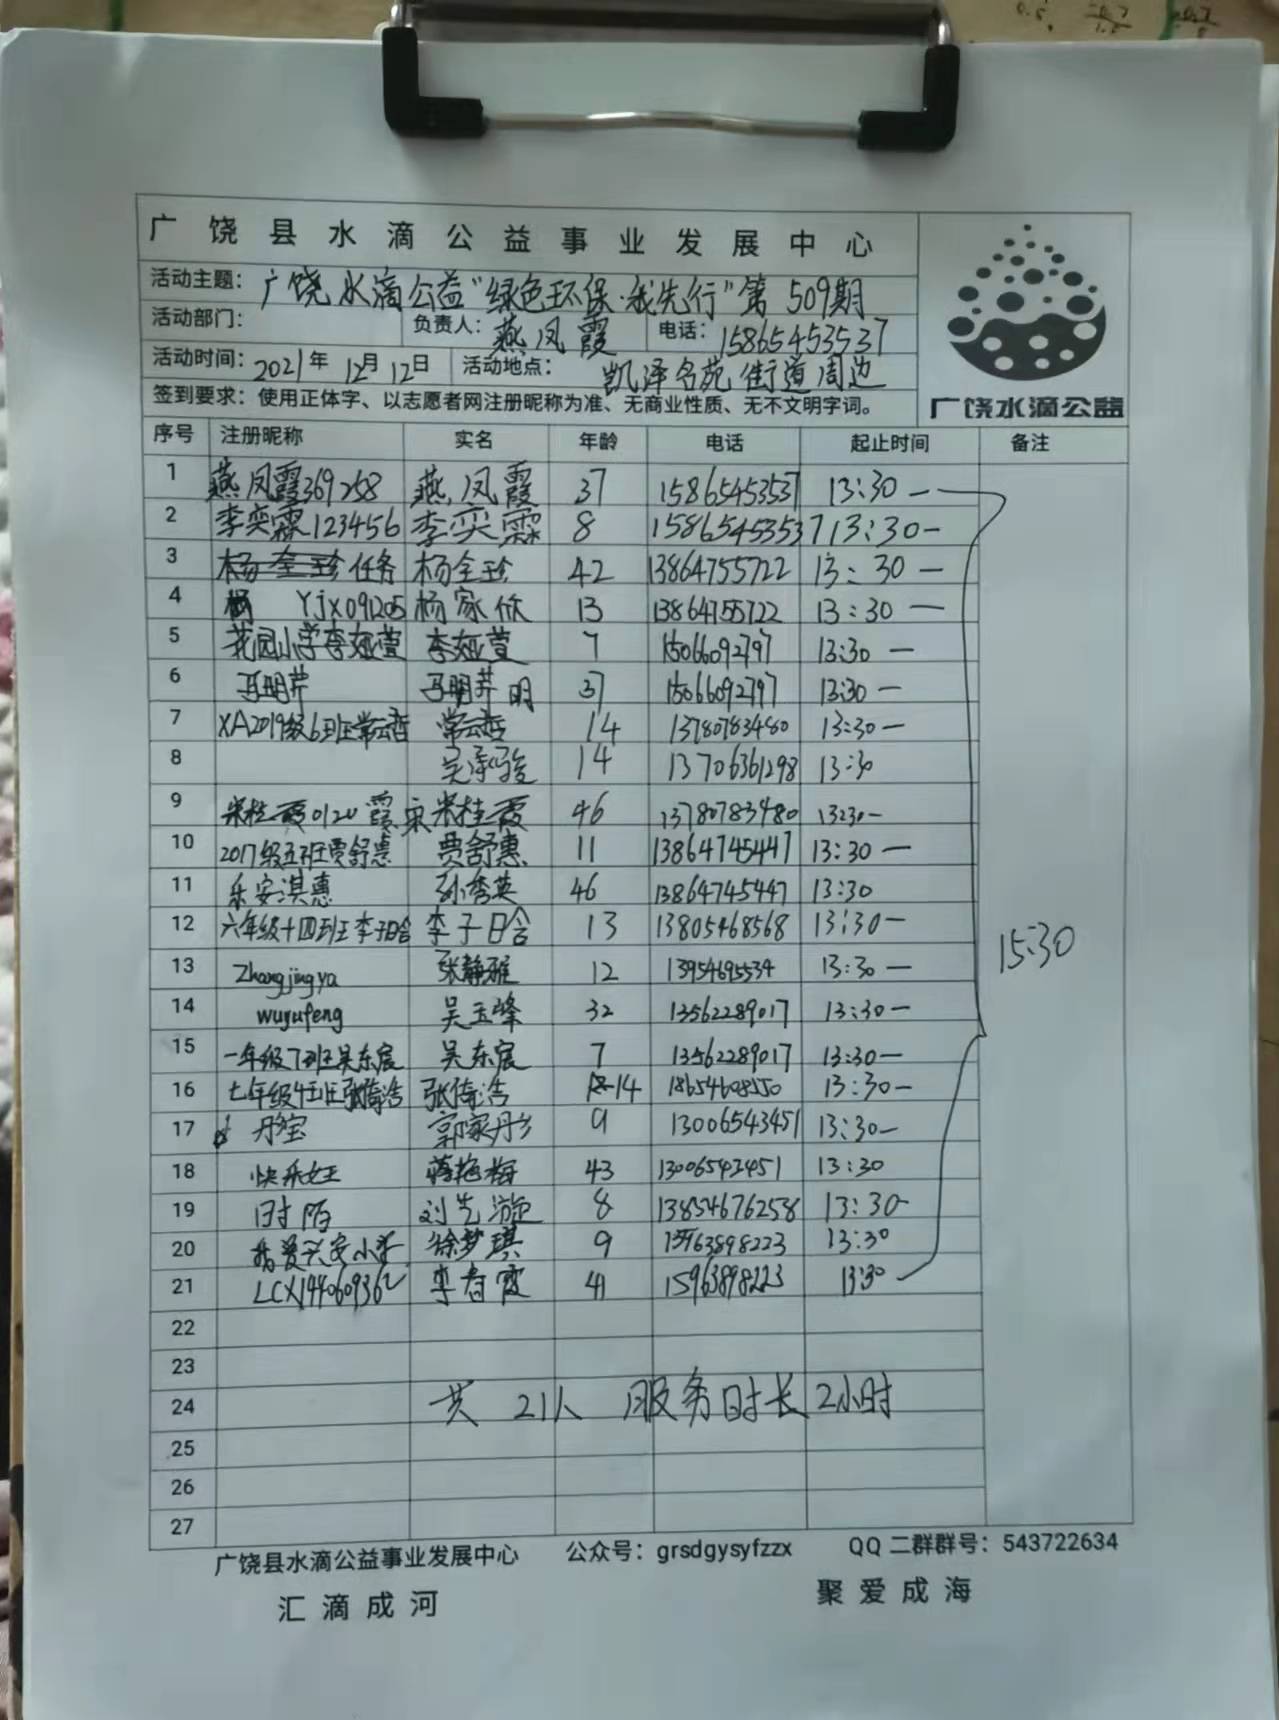 广饶县水滴公益事业发展中心
活动主题：广饶水滴公益"绿色环保·我先行"第509期
活动部门： 负责人：燕凤霞 电话：15865453537
活动时间：2021年12月12日 活动地点：凯泽名苑街道周边
签到要求：使用正体字、以志愿者网注册昵称为准、无商业性质、无不文明字词。
广饶水滴公益
序号 注册昵称 实名 年龄 电话 起止时间 备注
1 燕凤霞369258 燕凤霞 37 15865453537 13:30—
2 李奕霖123456 李奕霖 8 15865453537 13:30-
3 任务 杨全珍 42 13864755722 13:30—
4 Yjx091205 杨家欣 13 13864755722 13:30—
5 花园小学李娅萱 李娅萱 7 15066092797 13:30—
6 冯明芹 冯明芹 明 37 15066092797 13:30—
7 XA2019级6班常云哲 常云哲 14 13780783480 13:30—
8 吴承骏 14 13706361298 13:30
9 米桂霞0120 霞 米桂霞 46 13780783480 13:30—
10 2017级五班贾舒惠 贾舒惠 11 13864745447 13:30—
11 乐安淇惠 孙秀英 46 13864745447 13:30
12 六年级十四班李子晗 李子晗 13 13805468568 13:30—
13 Zhangjingya 张静雅 12 13954695534 13:30—
14 wuyufeng 吴玉峰 32 13562289017 13:30—
15 一年级7班吴东宸 吴东宸 7 13562289017 13:30—
16 七年级 张倚浩 张倚浩 14 18654608550 13:30—
17 丹宝 郭家彤 9 13006543451 13:30—
18 快乐女王 蒋艳梅 43 13006543451 13:30
19 时陌 刘先漩 8 138546762538 13:30-
20 我爱兴安小学 徐梦琪 9 15963898223 13:30
21 LCX144060936 李春霞 41 15963898223 13:30
15:30
22
23
24 共21人 服务时长2小时
25
26
27
广饶县水滴公益事业发展中心 公众号：grsdgysyfzzx QQ二群群号：543722634
汇滴成河 聚爱成海